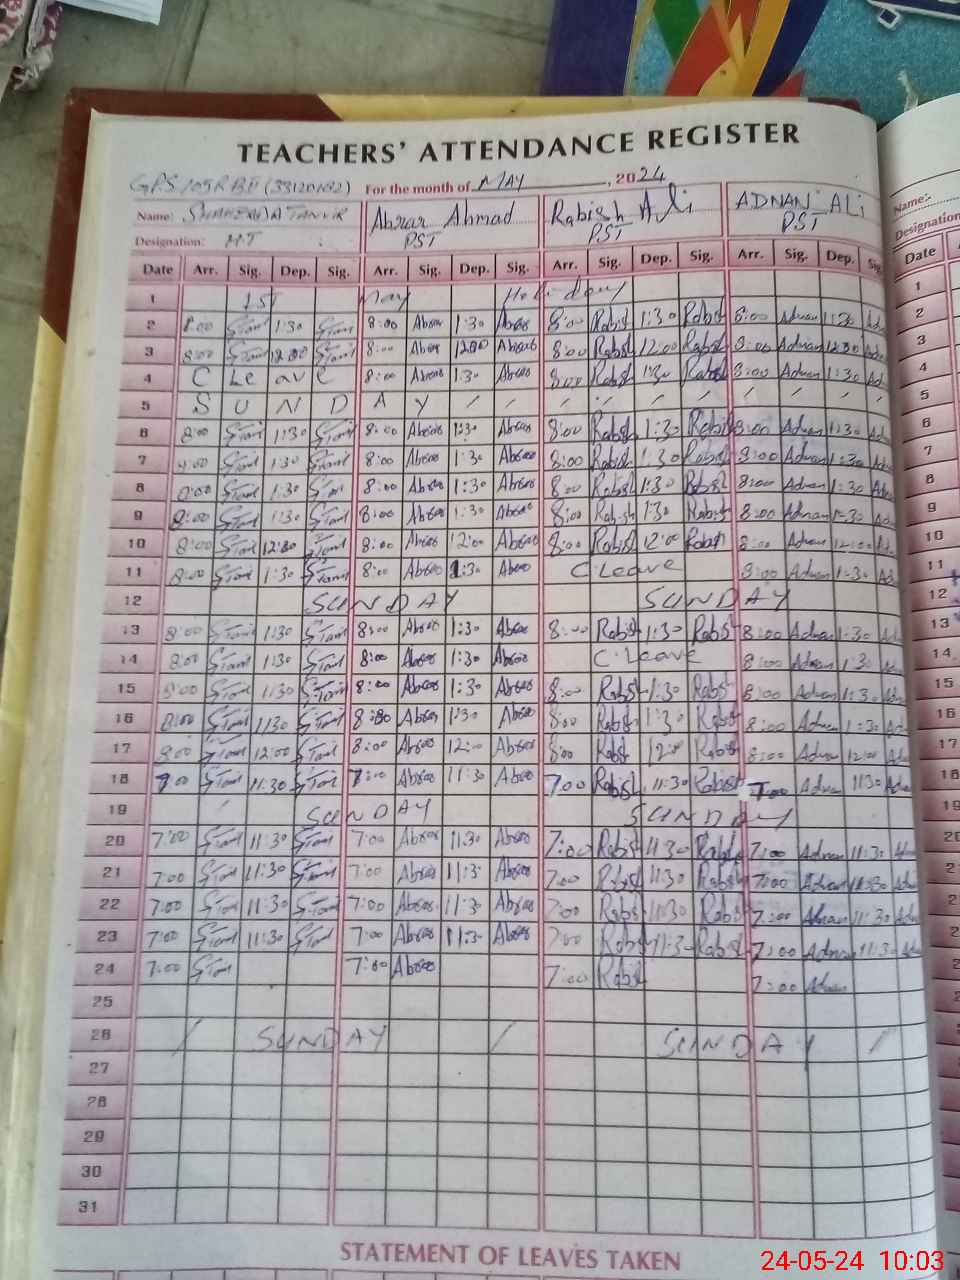 TEACHERS' ATTENDANCE REGISTER
GPS 105 RB II (33120182) For the month of MAY, 2024
Name: SHAHZADA TANVIR Abrar Ahmad Rabish Ali ADNAN ALI
Designation: HT PST PST PST
Date Arr. Sig. Dep. Sig. Arr. Sig. Dep. Sig. Arr. Sig. Dep. Sig. Arr. Sig. Dep. Sig.
1 1st May Holiday
2 8:00 STanv 1:30 STanv 8:00 Abrar 1:30 Abrar 8:00 Rabish 1:30 Rabish 8:00 Adnan 1:30 Ad
3 8:00 STanv 12:00 STanv 8:00 Abrar 12:00 Abrar 8:00 Rabish 12:00 Rabish 8:00 Adnan 12:00 Ad
4 C Leave 8:00 Abrar 1:30 Abrar 8:00 Rabish 1:30 Rabish 8:00 Adnan 1:30 Ad
5 SUNDAY
6 8:00 STanv 1:30 STanv 8:00 Abrar 1:30 Abrar 8:00 Rabish 1:30 Rabish 8:00 Adnan 1:30 Ad
7 8:00 STanv 1:30 STanv 8:00 Abrar 1:30 Abrar 8:00 Rabish 1:30 Rabish 8:00 Adnan 1:30 Ad
8 8:00 STanv 1:30 STanv 8:00 Abrar 1:30 Abrar 8:00 Rabish 1:30 Rabish 8:00 Adnan 1:30 Ad
9 8:00 STanv 1:30 STanv 8:00 Abrar 1:30 Abrar 8:00 Rabish 1:30 Rabish 8:00 Adnan 1:30 Ad
10 8:00 STanv 12:00 STanv 8:00 Abrar 12:00 Abrar 8:00 Rabish 12:00 Rabish 8:00 Adnan 12:00 Ad
11 8:00 STanv 1:30 STanv 8:00 Abrar 1:30 Abrar C.Leave 8:00 Adnan 1:30 Ad
12 SUNDAY SUNDAY
13 8:00 STanv 1:30 STanv 8:00 Abrar 1:30 Abrar 8:00 Rabish 1:30 Rabish 8:00 Adnan 1:30 Ad
14 8:00 STanv 1:30 STanv 8:00 Abrar 1:30 Abrar C.Leave 8:00 Adnan 1:30 Ad
15 8:00 STanv 1:30 STanv 8:00 Abrar 1:30 Abrar 8:00 Rabish 1:30 Rabish 8:00 Adnan 1:30 Ad
16 8:00 STanv 1:30 STanv 8:00 Abrar 1:30 Abrar 8:00 Rabish 1:30 Rabish 8:00 Adnan 1:30 Ad
17 8:00 STanv 12:00 STanv 8:00 Abrar 12:00 Abrar 8:00 Rabish 12:00 Rabish 8:00 Adnan 12:00 Ad
18 7:00 STanv 11:30 STanv 7:00 Abrar 11:30 Abrar 7:00 Rabish 11:30 Rabish 7:00 Adnan 11:30 Ad
19 SUNDAY SUNDAY
20 7:00 STanv 11:30 STanv 7:00 Abrar 11:30 Abrar 7:00 Rabish 11:30 Rabish 7:00 Adnan 11:30 Adn
21 7:00 STanv 11:30 STanv 7:00 Abrar 11:30 Abrar 7:00 Rabish 11:30 Rabish 7:00 Adnan 11:30 Adn
22 7:00 STanv 11:30 STanv 7:00 Abrar 11:30 Abrar 7:00 Rabish 11:30 Rabish 7:00 Adnan 11:30 Adn
23 7:00 STanv 11:30 STanv 7:00 Abrar 11:30 Abrar 7:00 Rabish 11:30 Rabish 7:00 Adnan 11:30 Adn
24 7:00 STanv 7:00 Abrar 7:00 Rabish 7:00 Adnan
25
26 SUNDAY SUNDAY
27
28
29
30
31
STATEMENT OF LEAVES TAKEN
Name:-
Designation
Date
1
2
3
4
5
6
7
8
9
10
11
12
13
14
15
16
17
18
19
20
24-05-24 10:03